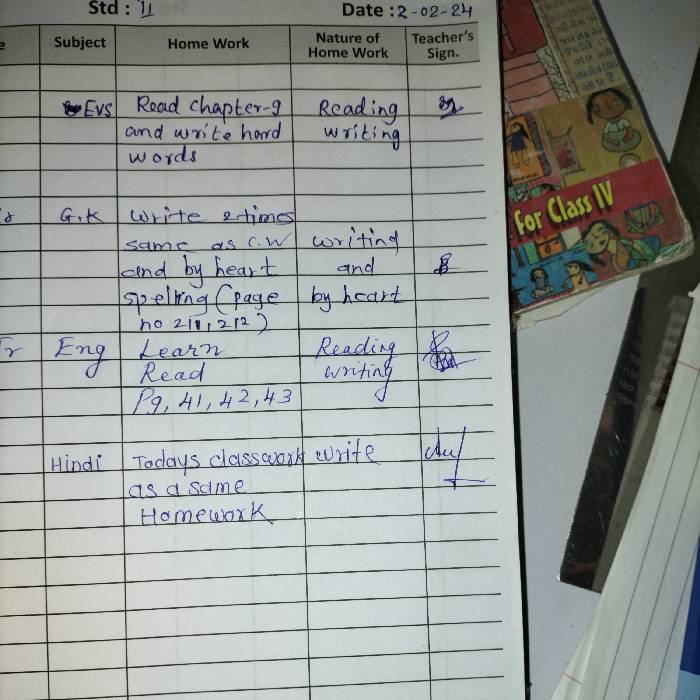 Std : II Date : 2-02-24
Subject Home Work Nature of Home Work Teacher's Sign.
EVS Read chapter-9 Reading
and write hard writing
words
G.K write 2 times
same as C.W writing
and by heart and
spelling (page by heart
no 211, 212)
Eng Learn Reading
Read writing
Pg, 41, 42, 43
Hindi Todays classwork write
as a same
Homework
for Class IV